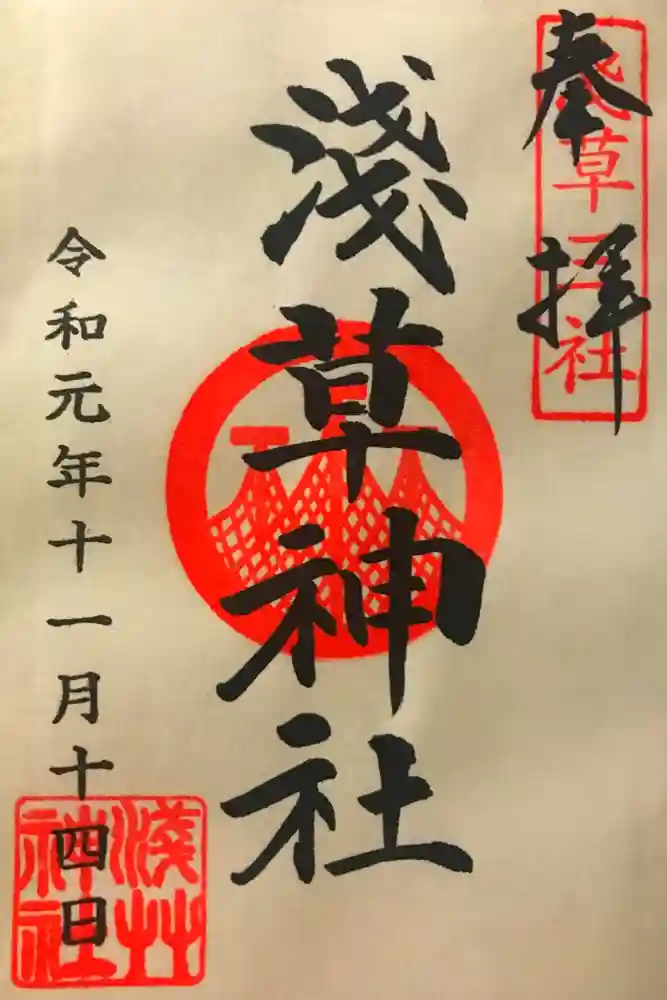 奉拝
淺草三社
淺草神社
令和元年十一月十四日
淺草神社